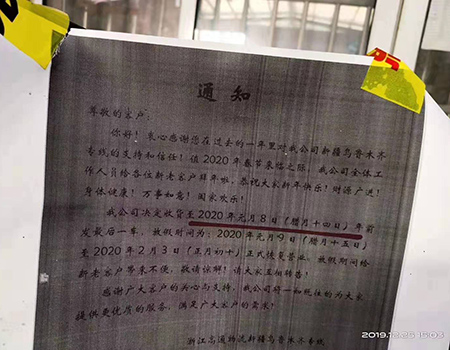 通知
尊敬的客户:
你好!衷心感谢您在过去的一年里对我公司新疆乌鲁木齐
专线的支持和信任!该2020年春节来临之际,我公司全体工
作人员给各位新老客户拜年啦,恭祝大家新年快乐!财源广进!
身体健康!万事如意!阖家欢乐!
我公司决定收货至2020年元月8日(腊月十四日)年前
发最后一车,放假时间为:2020年元月9日(腊月十五日)
至2020年2月3日(正月初十)正式恢复营业,放假期间给
新老客户带来不便,敬请谅解!请大家互相转告!
感谢广大客户的关心与支持,我公司将一如既往的为大家
提供更优质的服务,满足广大客户的需求!
浙江高通物流新疆乌鲁木齐专线